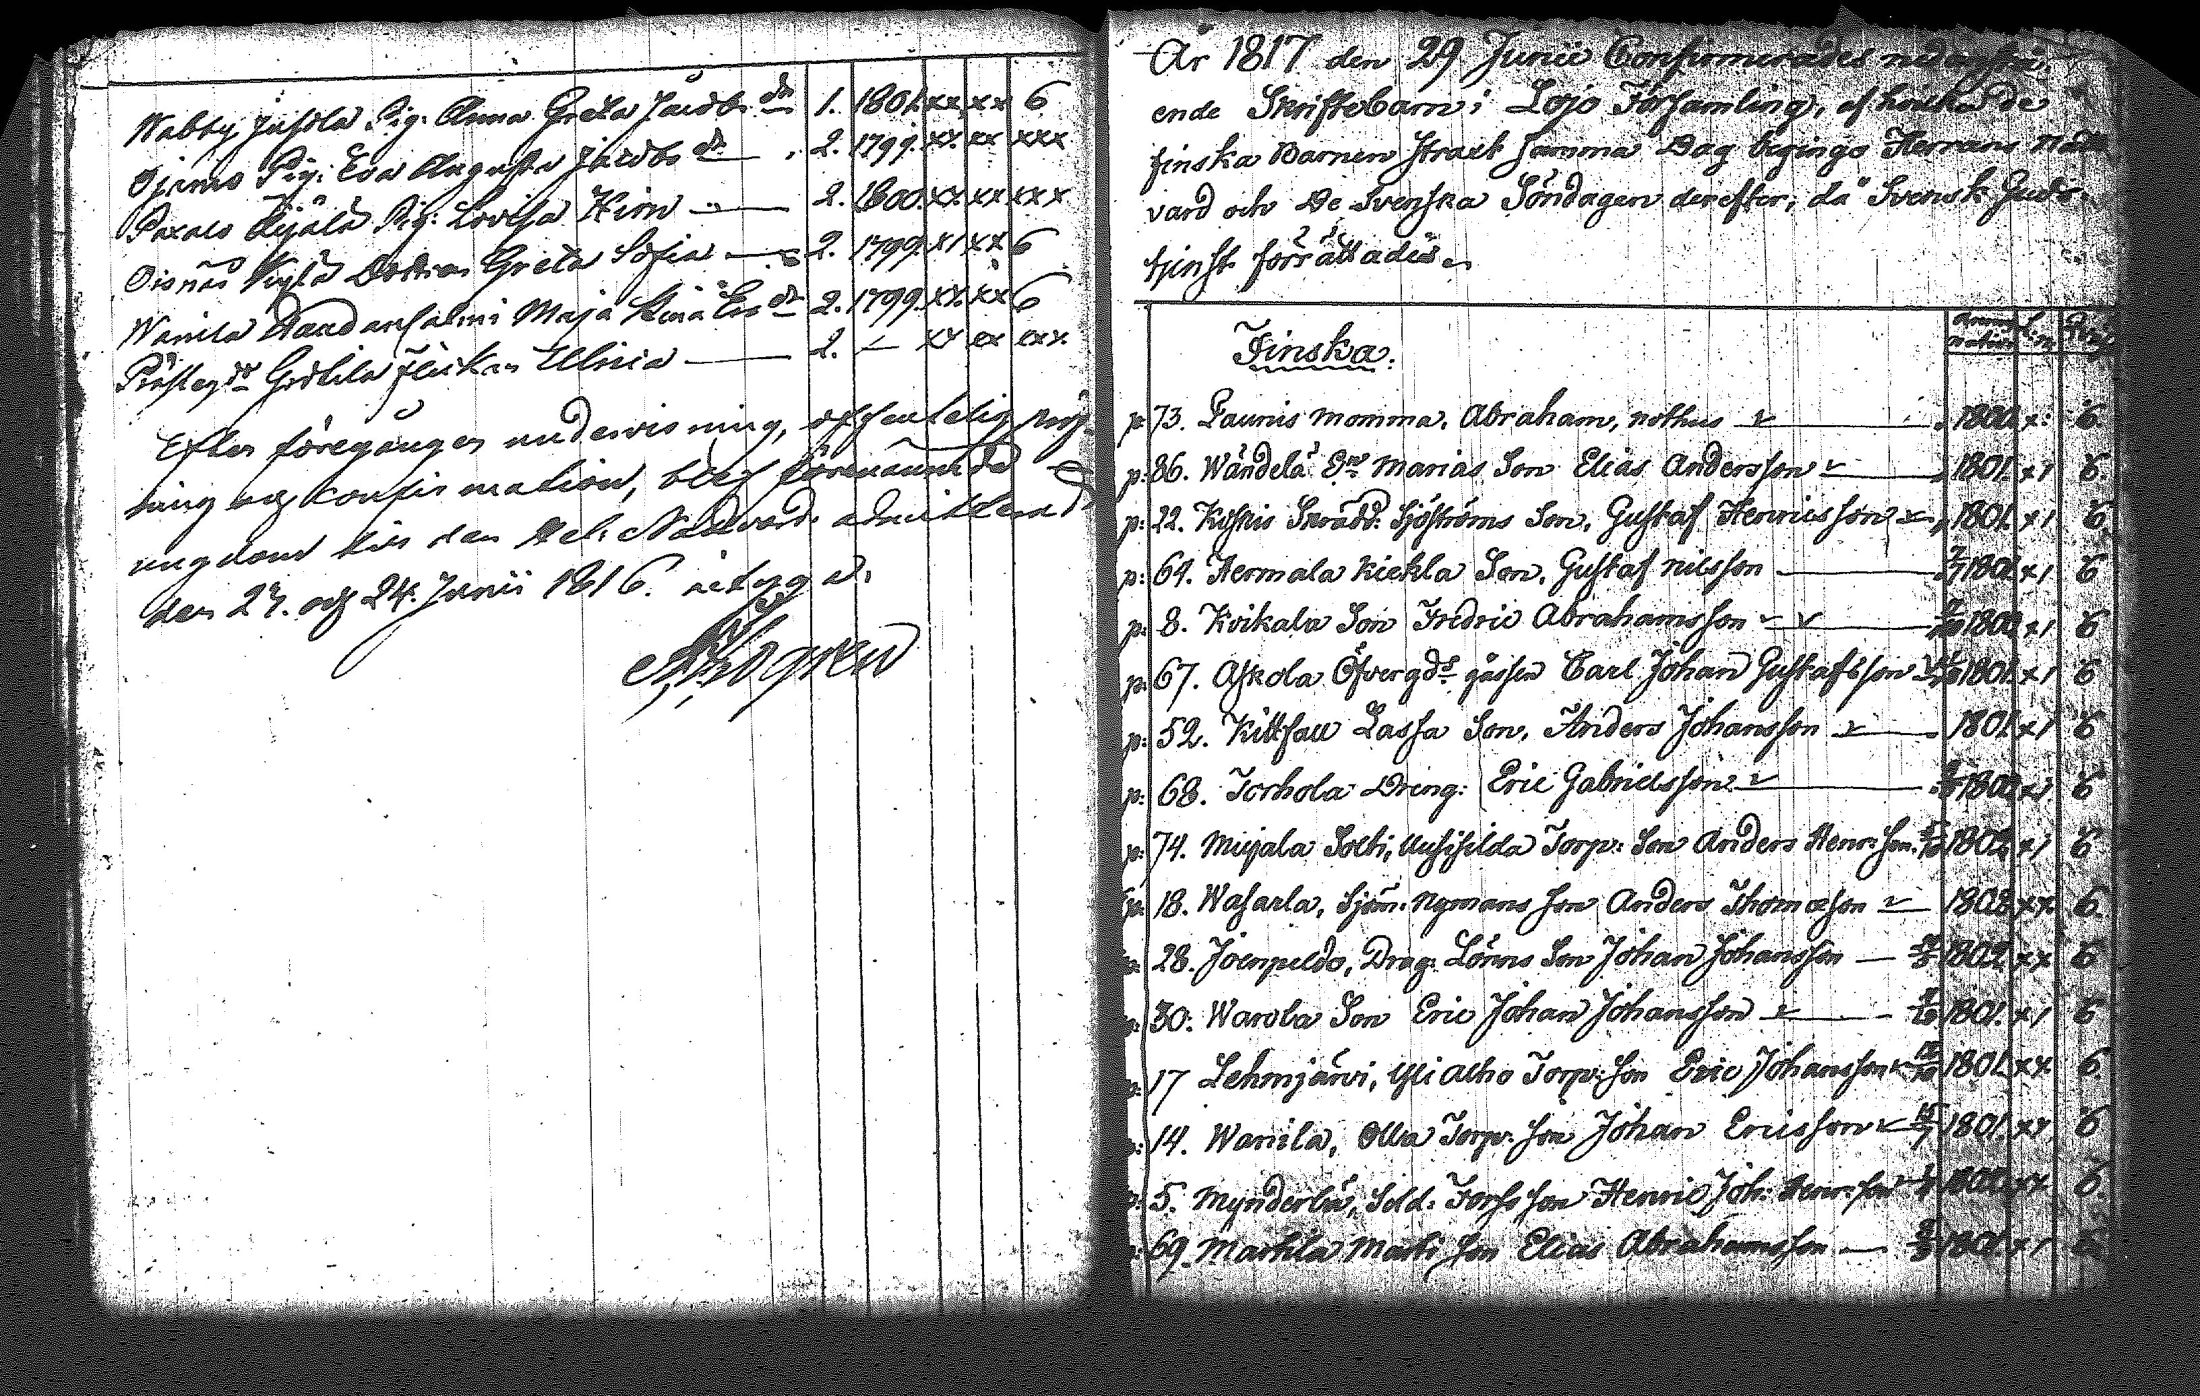 Nabby Jusola Pig. Anna Greta Jacobs dr 1. 1801. xx xx 6
Ojamo Pig. Eva Augusta Jacobs dr 2. 1799. xx. xx xxx
Paxalo Pig. Lovisa 2. 1800. xx xx xxx
Oisnäs Dottren Greta Sofia 2. 1799. x1 xx 6
Wanila Maja Stina dr 2. 1799. xx. xx 6
Prästegds Flickan Ulrica 2. — xx xx xxx
Efter föregången undervisning, offentelig
och confirmation, blef förenämnde
ungdom till den Hel. Nattvard. admitterad
den 23. och 24. Junii 1816. intyga.
År 1817 den 29 Junii Confirmerades
ende Skriftebarn i Lojo Församling, af hvilka de
finska Barnen straxt samma Dag begingo Herrans Natt
vard och De Svenska Söndagen derefter, då Svensk Guds
tjenst förrättades.
Finska.
p: 73. Paunis Momma, Abraham, nothus 1800 x 6.
p: 86. Wändelä Enk. Marias Son Elias Andersson 1801. x1 6.
p: 22. Skrädd. Sjöströms Son, Gustaf Henricsson 1801. x1 6
p: 64. Hermala Kiekla Son, Gustaf Nilsson 1801 x1 6
p: 8. Koikala Son Fredric Abrahamsson x1 6
p: 67. Askola Öfvergds gossen Carl Johan Gustafsson 1801. x1 6
p: 52. Kittfall Lassa Son, Anders Johansson 1801. x1 6
p: 68. Torhola Dreng: Eric Gabrielsson x1 6
p: 74. Muijala Solti, Uusisilda Torp: Son Anders Henr:son 1802 x1 6
p: 18. Wasarla, Sjöm. Nymans Son Anders Thomasson xx. 6.
p: 28. Joenpeldo, Drag. Lönns Son Johan Johansson 1802 xx 6
p: 30. Warola Son Eric Johan Johansson 1801. x1 6
p: 17 Lehmjärvi, Yli Torp: Son Eric Johansson 1801. xx 6.
p: 14. Wanila, Olla Torp: Son Johan Ericsson 1801. xx 6
p: 5. Mynderlä, Sold: Forss Son Henric Joh: Henr:son xx 6.
p: 69. Markila Matti Son Elias Abrahamsson 1801. x1 6